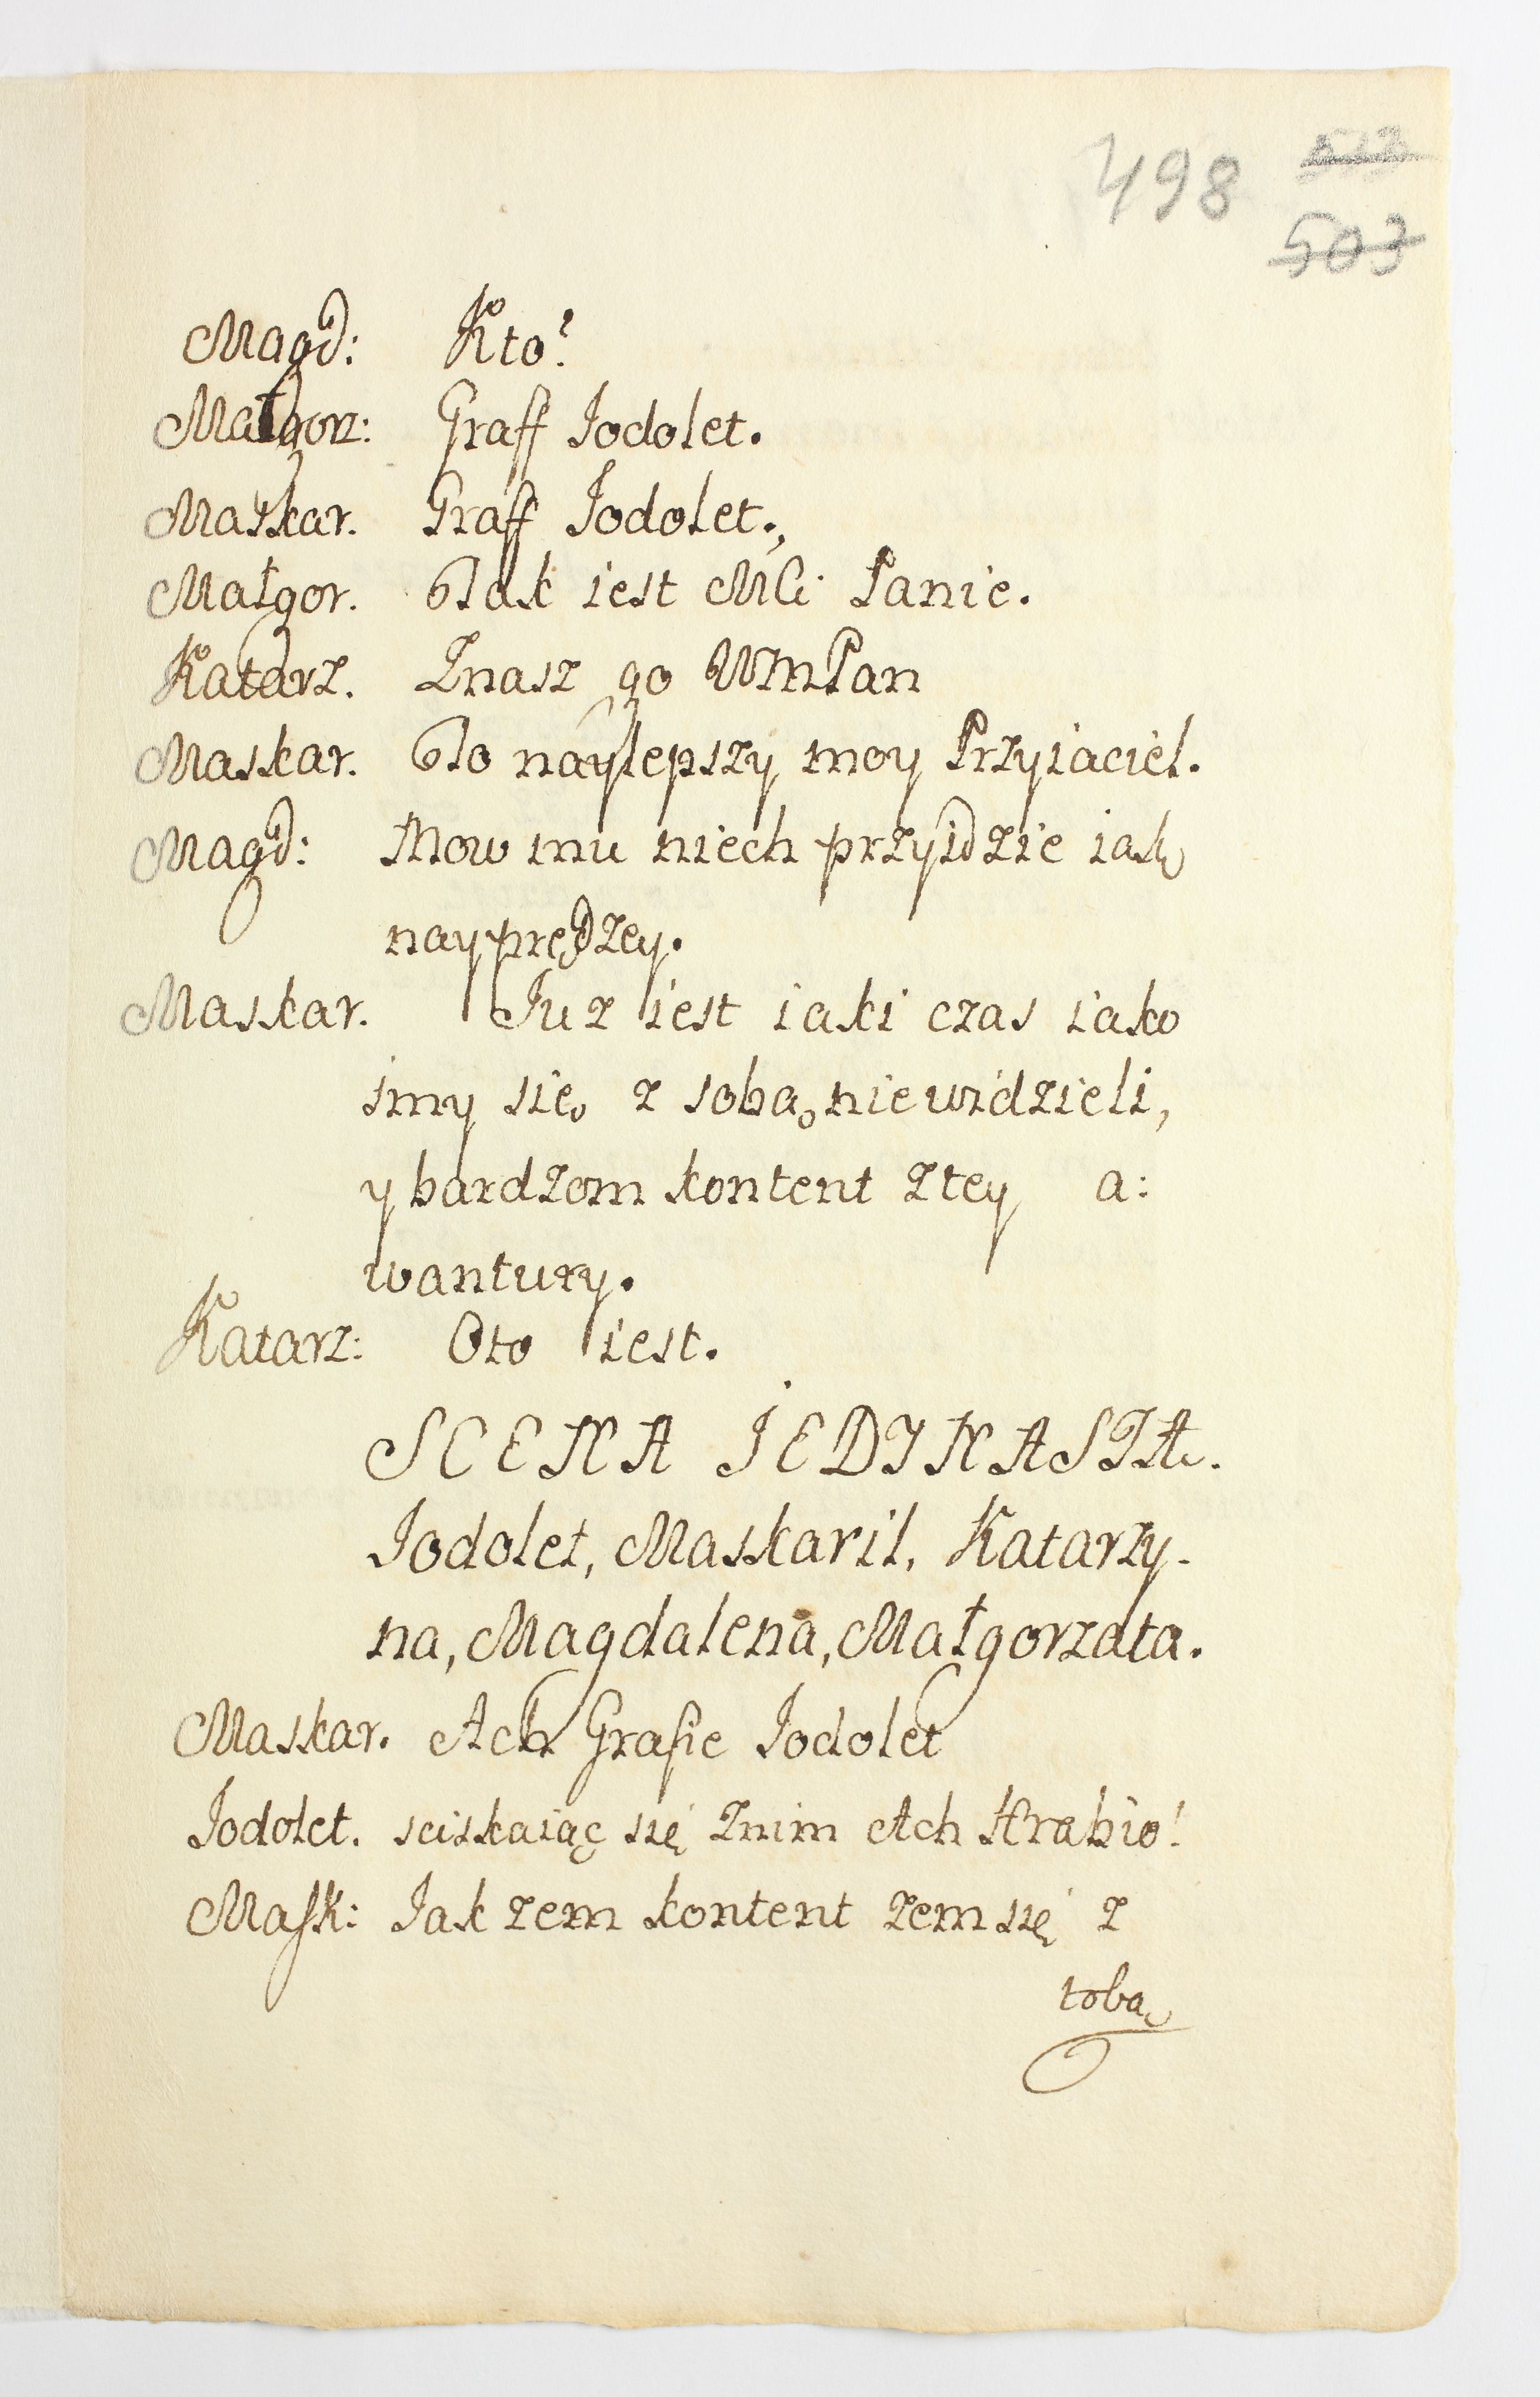 498
503
Magd: Kto?
Małgorz: Graff Jodolet.
Maskar. Graff Jodolet.
Małgor. Tak iest Mći Panie.
Katarz. Znasz go WMPan
Maskar. To naylepszy moy Przyiaciel.
Magd: Mow mu niech przyidzie iak
nayprędzey.
Maskar. Juz iest iaki czas iako
smy się z sobą niewidzieli,
y bardzom kontent z tey a:
wantury.
Katarz: Oto iest.
SCENA JEDYNASTA.
Jodolet, Maskaril, Katarzy-
na, Magdalena, Małgorzata.
Maskar. Ach Grafie Jodolet
Jodolet. sciskaiąc się znim Ach Hrabio!
Mask: Jak zem kontent zem się z
tobą